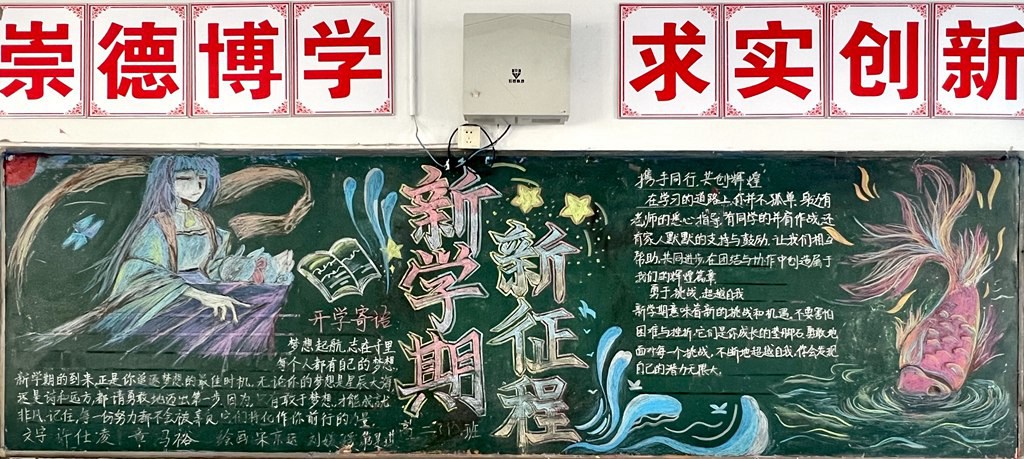 崇德博学
求实创新
新学期
新征程
开学寄语
梦想起航,志在千里
每个人都有自己的梦想,
新学期的到来,正是你追逐梦想的最佳时机,无论你的梦想是星辰大海
还是诗和远方,都请勇敢地迈出第一步,因为,敢于梦想,才能成就
非凡,记住,每一份努力都不会被辜负,它们将化作你前行的力量
文字 许仕凌 马裕 绘画 宋京
高二 班
携手同行,共创辉煌
在学习的道路上,你并不孤单,身边有
老师的悉心指导,有同学的并肩作战,还
有家人默默的支持与鼓励,让我们相互
帮助,共同进步,在团结与协作中创造属于
我们的辉煌篇章
勇于挑战,超越自我
新学期意味着新的挑战和机遇,不要害怕
困难与挫折,它们是你成长的垫脚石,勇敢地
面对每一个挑战,不断地超越自我,你会发现
自己的潜力无限大。